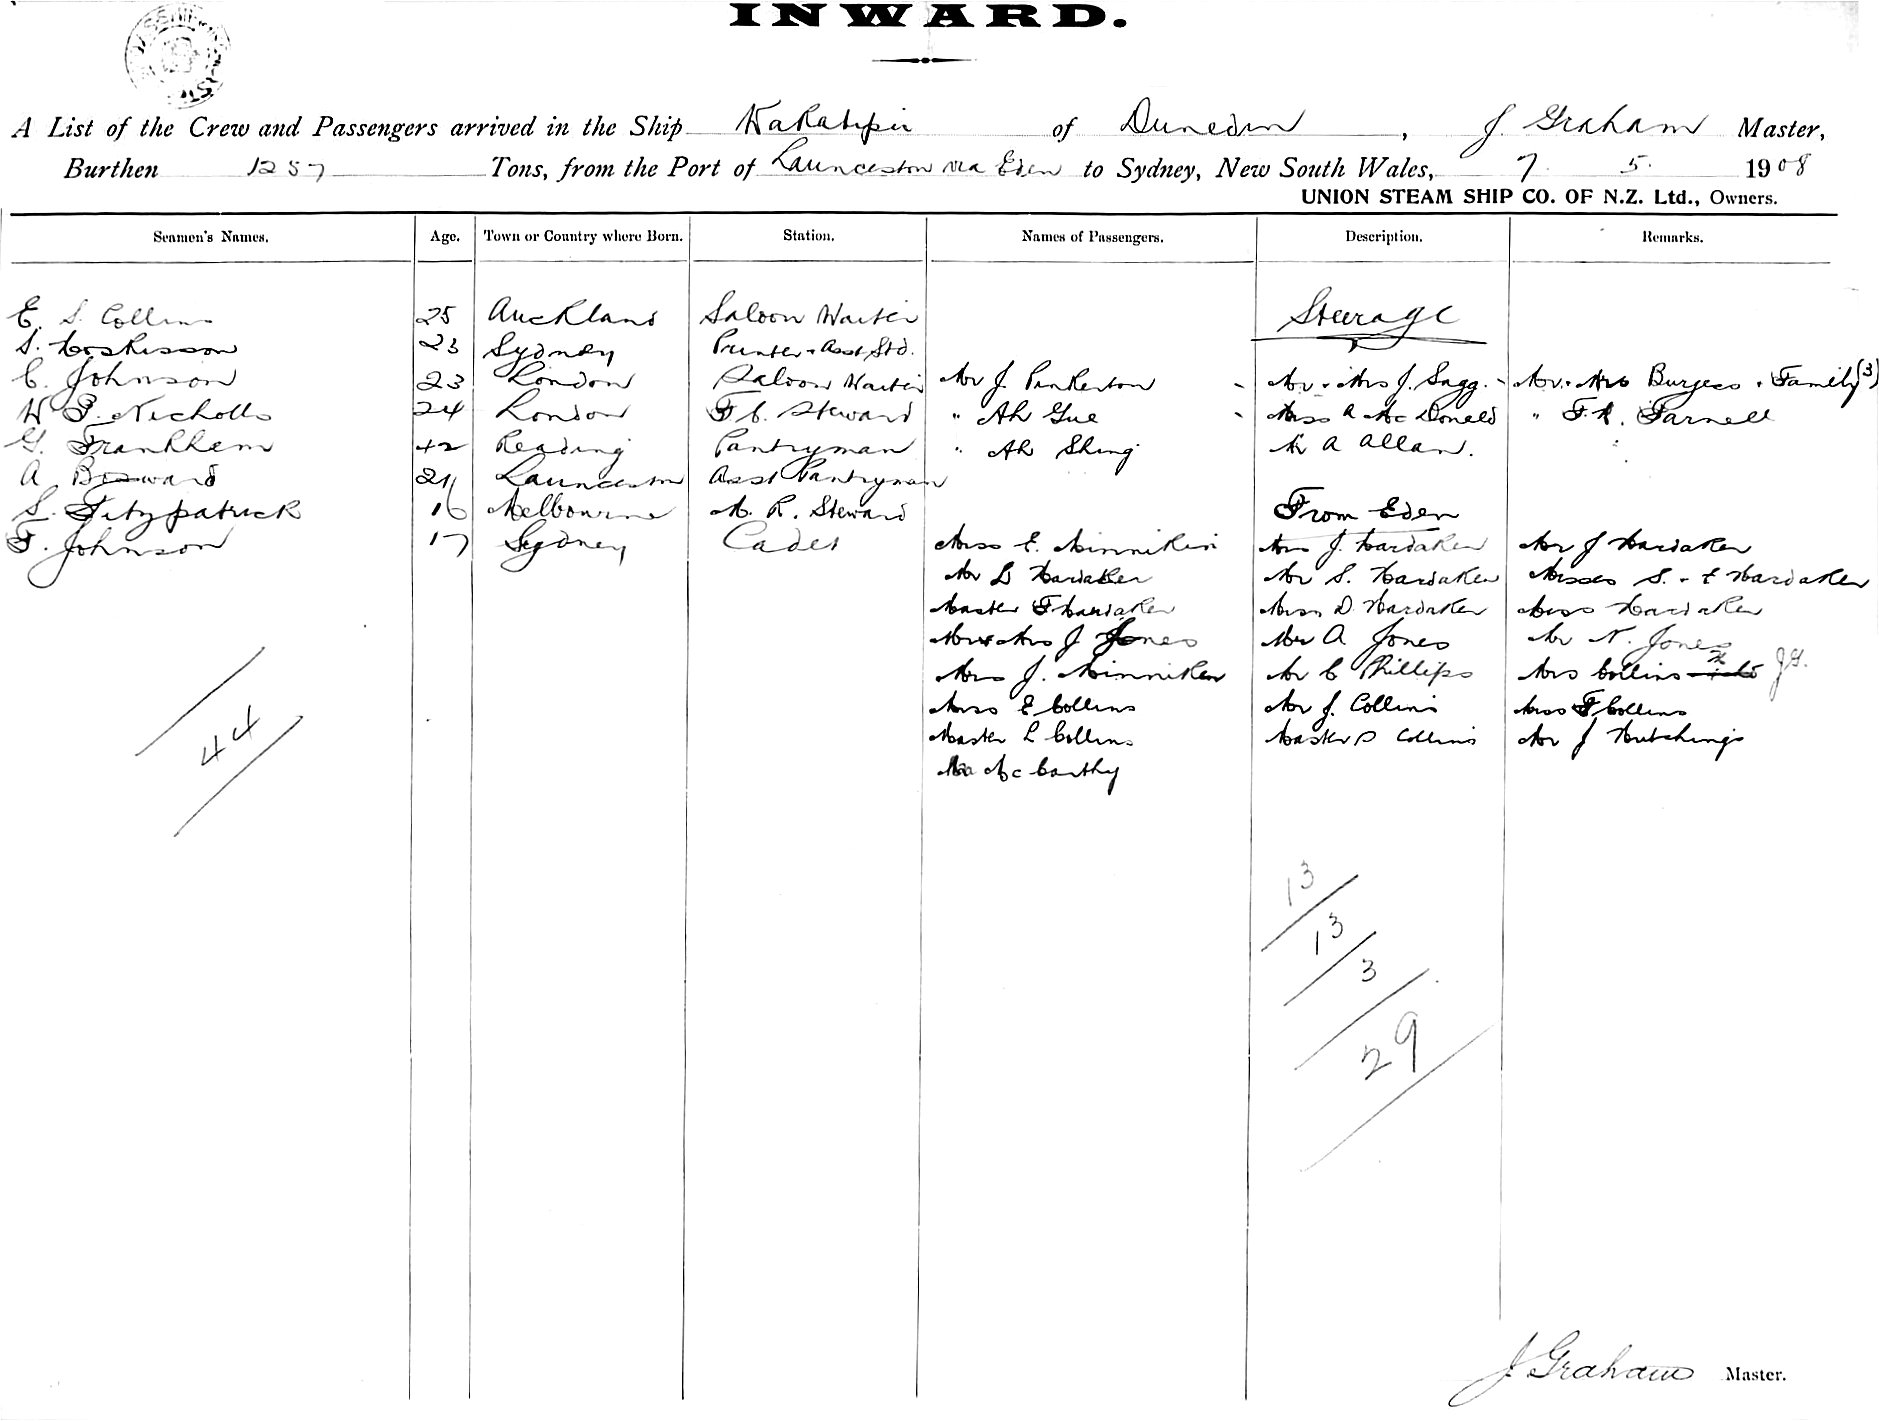 INWARD.
A List of the Crew and Passengers arrived in the Ship Wakatipu of Dunedin, J. Graham Master,
Burthen 1257 Tons, from the Port of Launceston via Eden to Sydney, New South Wales, 7 5. 1908
UNION STEAM SHIP CO. OF N.Z. Ltd., Owners.
Seamen's Names. Age. Town or Country where Born. Station. Names of Passengers. Description. Remarks.
E. S. Collins 25 Auckland Saloon Waiter Steerage
S. Hoskisson 23 Sydney Printer & Asst Std.
C. Johnson 23 London Saloon Waiter Mr J. Pankerton Mr & Mrs J. Sagg. Mr & Mrs Burgess & Family (3)
W. Nicholls 24 London F. C. Steward " Ah Gue Miss R McDonald " F. R. Farnell
G. Frankham 42 Reading Pantryman " Ah Shing A Allan.
A 21 Launceston Asst Pantryman
S. Fitzpatrick 16 Melbourne M. R. Steward From Eden
F. Johnson 17 Sydney Cadet Miss E. Minnikin Mrs J. Hardaker Mr J Hardaker
Mr D Hardaker Mr S. Hardaker Misses S. & E Hardaker
Master F Hardaker Miss D. Hardaker Miss Hardaker
Mr & Mrs J Jones Mr A Jones Mr N. Jones
Mrs J. Minniken Mr C Phillips Mrs Collins J.G.
Miss E Collins Mr J. Collins Miss F Collins
Master L Collins Master D Collins Mr J Hutchings
McCarthy
44
13
13
3
29
J Graham Master.